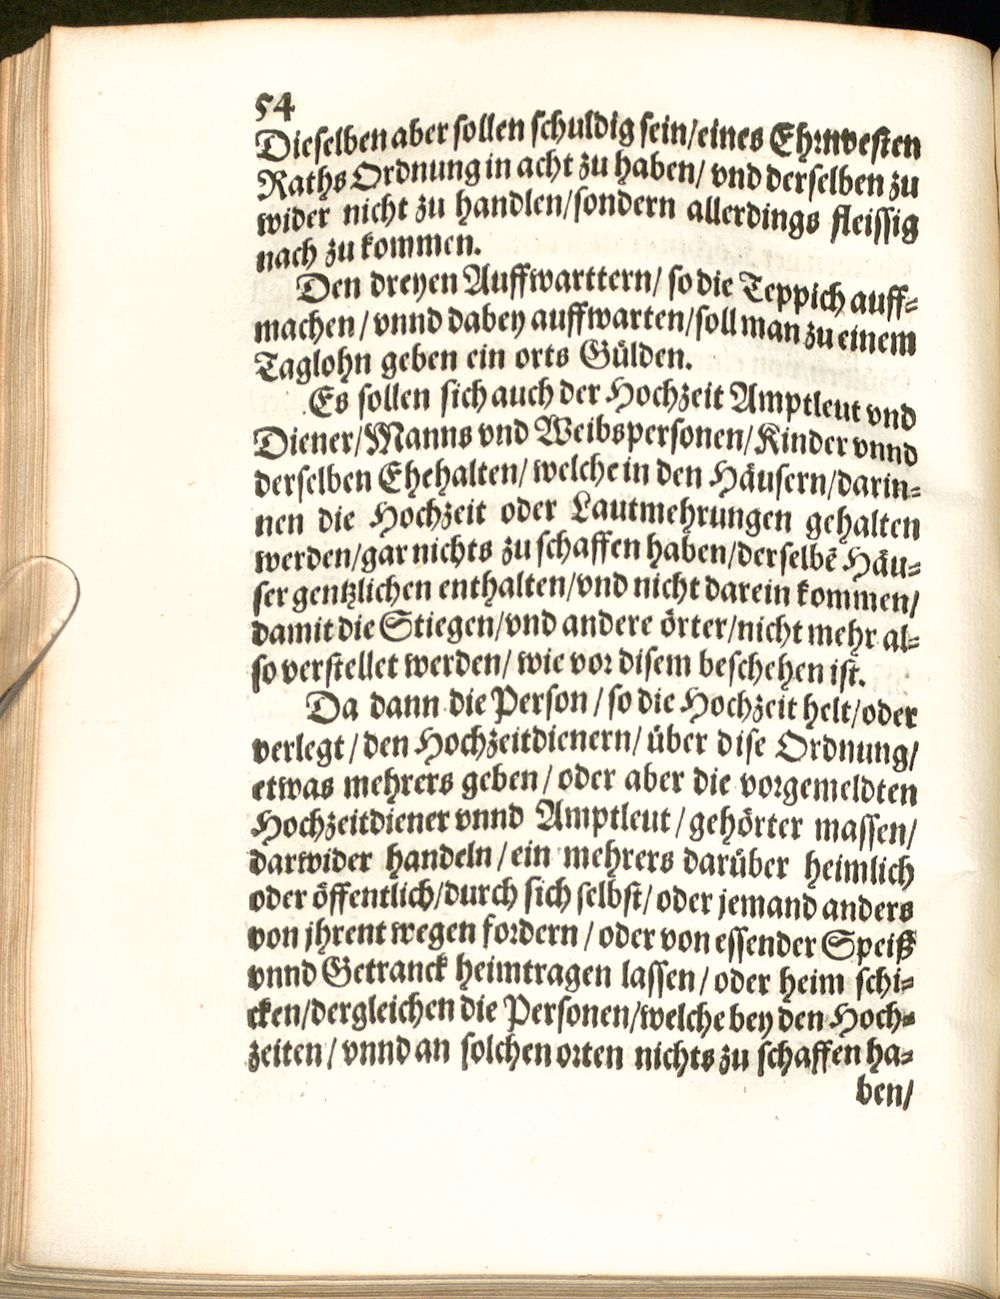 54
Dieselben aber sollen schuldig sein/eines Ehrnvesten
Raths Ordnung in acht zu haben/ vnd derselben zu
wider nicht zu handlen/sondern allerdings fleissig
nach zu kommen.
Den dreyen Auffwarttern/ so die Teppich auff-
machen/ vnnd dabey auffwarten/soll man zu einem
Taglohn geben ein orts Gülden.
Es sollen sich auch der Hochzeit Amptleut vnd
Diener/Manns vnd Weibspersonen/Kinder vnnd
derselben Ehehalten/ welche in den Häusern/darin-
nen die Hochzeit oder Lautmehrungen gehalten
werden/gar nichts zu schaffen haben/derselbē Häu-
ser gentzlichen enthalten/vnd nicht darein kommen/
damit die Stiegen/vnd andere örter/nicht mehr al-
so verstellet werden/ wie vor disem beschehen ist.
Da dann die Person/ so die Hochzeit helt/oder
verlegt/ den Hochzeitdienern/ über dise Ordnung/
etwas mehrers geben/ oder aber die vorgemeldten
Hochzeitdiener vnnd Amptleut/gehörter massen/
darwider handeln/ein mehrers darüber heimlich
oder öffentlich/durch sich selbst/ oder jemand anders
von jhrent wegen fordern/ oder von essender Speiß
vnnd Getranck heimtragen lassen/ oder heim schi-
cken/dergleichen die Personen/welche bey den Hoch-
zeiten/ vnnd an solchen orten nichts zu schaffen ha-
ben/